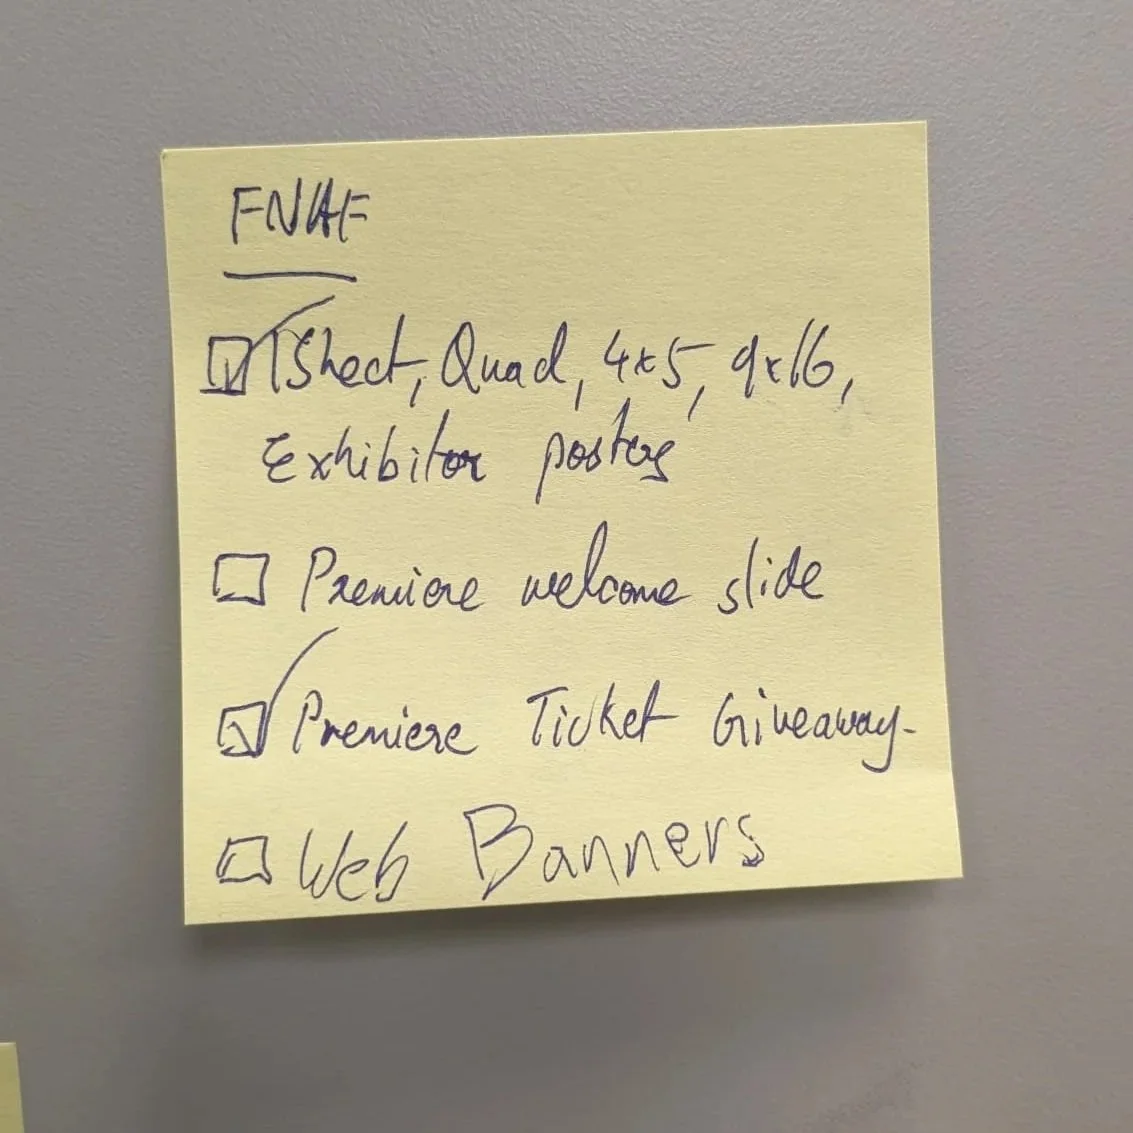 FNAF
1Sheet, Quad, 4x5, 9x16,
Exhibitor posters
Premiere welcome slide
Premiere Ticket Giveaway-
Web Banners